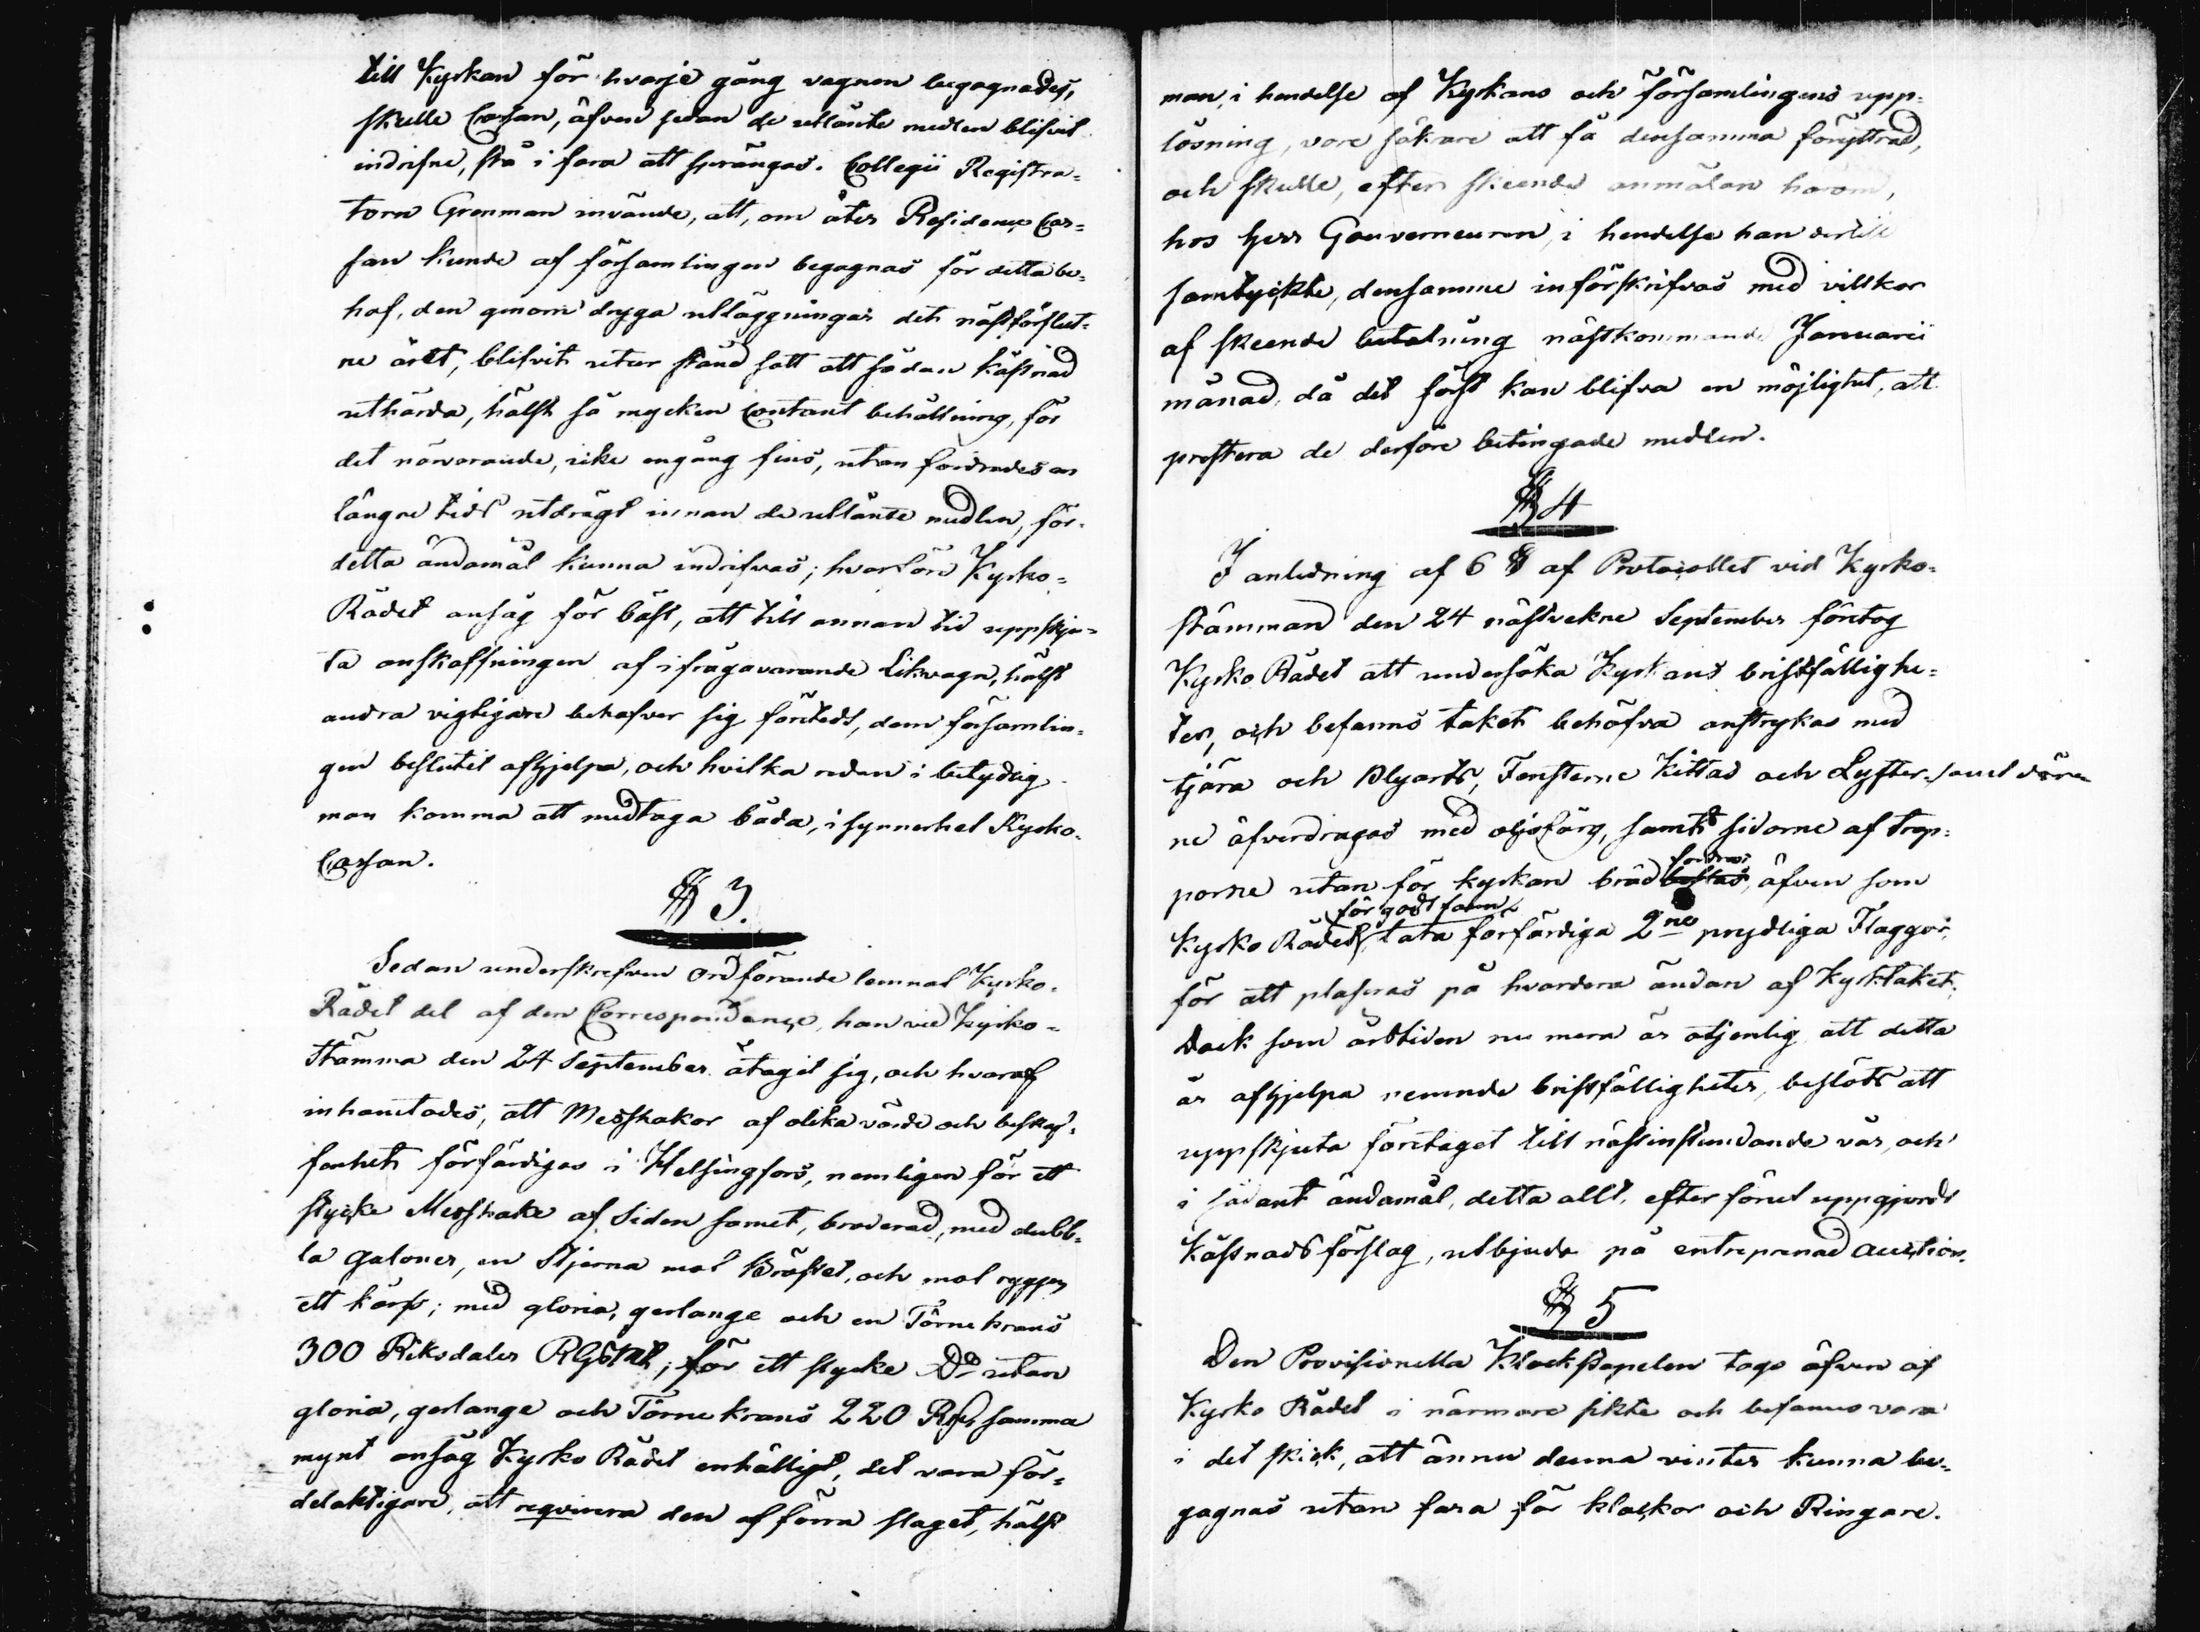 till Kyrkan för hvarje gång vagnen begagnades,
skulle Cassan, äfven sedan de utlånte medlen blifvit
indrifne, stå i fara att sprängas. Collegii Registra=
torn Grenman invände, att, om åter Residence Cas=
san kunde af församlingen begagnas för detta be=
hof, den genom dryga utläggningar det nästförflut=
ne året, blifvit utur stånd satt att sådan kåstnad
uthärda, hälst så mycken Contant behållning, för
det närvarande, icke engång fins, utan fordrades en
längre tids utdrägt innan de utlånte medlen, för
detta ändamål kunna indrifvas; hvarföre Kyrko=
Rådet ansåg för bäst, att till annan tid uppskju=
ta anskaffningen af ifrågavarande Likvagn, hälst
andra vigtigare behofver sig företedt, dem församlin=
gen beslutit afhjelpa, och hvilka redan i betydlig
mon komma att medtaga båda, i synnerhet Kyrko=
Cassan.
§ 3.
Sedan underskrefven Ordförande lemnat Kyrko=
Rådet del af den Correspondance, han vid Kyrko=
Stämma den 24 September åtagit sig, och hvaraf
inhämtades, att Messhakor af olika värde och beskaf=
fenhet förfärdigas i Helsingfors, nemligen för ett
stycke Messhake af Siden samet, broderad, med dubb=
la galoner, en Stjerna mot Bröstet, och mot ryggen
ett kors; med gloria, gerlange och en Törnekrans
300 Riksdaler RGStal; för ett stycke Do utan
gloria, gerlange och Törnekrans 220 R samma
mynt ansåg Kyrko Rådet enhälligt, det vara för=
delaktigare, att reqvirera den af förra slaget, hälst
man, i hendelse af Kyrkans och församlingens upp=
lösning, vore säkrare att få densamma föryttrad,
och skulle, efter skeende anmälan härom,
hos Herr Gouverneuren, i hendelse han dertill
samtyckte, densamme införskrifvas med villkor
af skeende betalning nästkommande Januarii
månad, då det först kan blifva en möjlighet, att
prestera de derföre betingade medlen.
§ 4
I anledning af 6 § af Protocollet vid Kyrko=
stämman den 24 nästvekne September företog
Kyrko Rådet att undersöka Kyrkans bristfällighe=
ter, och befanns taket behöfva anstrykas med
tjära och Blyerts, Fensterne kittas och Lyfter samt dörar
ne öfverdragas med oljefärg, samt sidorne af trap=
porne utan för kyrkan bräd fodras, äfven som
Kyrko Rådet för godt fann låta förfärdiga 2ne prydliga Flaggor,
för att plaseras på hvardera ändan af Kyrktaket.
Dock som årstiden nu mera är otjenlig att detta
år afhjelpa nemnde bristfälligheter, beslöts att
uppskjuta företaget till nästinstundande vår, och
i sådant ändamål, detta allt, efter förut uppgjordt
Kåstnadsförslag, utbjuda på entreprenad auction.
§ 5
Den Provisionella Klockstapelen togs äfven af
Kyrko Rådet i närmare sikte och befanns vara
i det skick, att ännu denna vinter kunna be=
gagnas utan fara för klockor och Ringare.